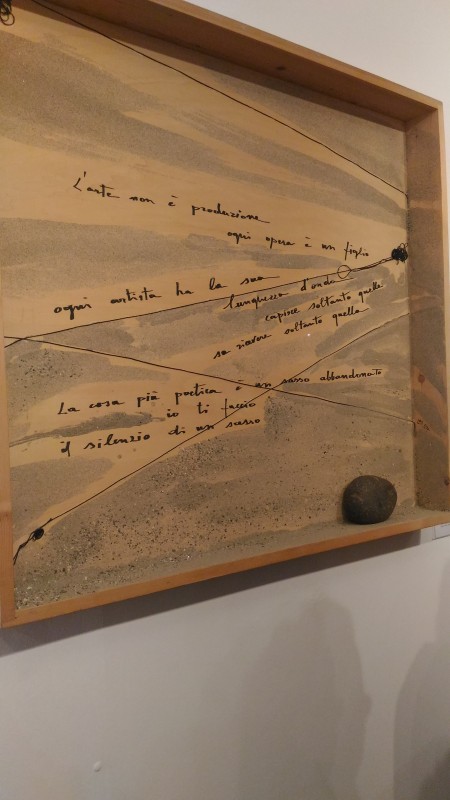 L'arte non è produzione
ogni opera è un figlio
ogni artista ha la sua
lunghezza d'onda
capisce soltanto quella
sa ricevere soltanto quella
La cosa più poetica è un sasso abbandonato
io ti faccio
il silenzio di un sasso